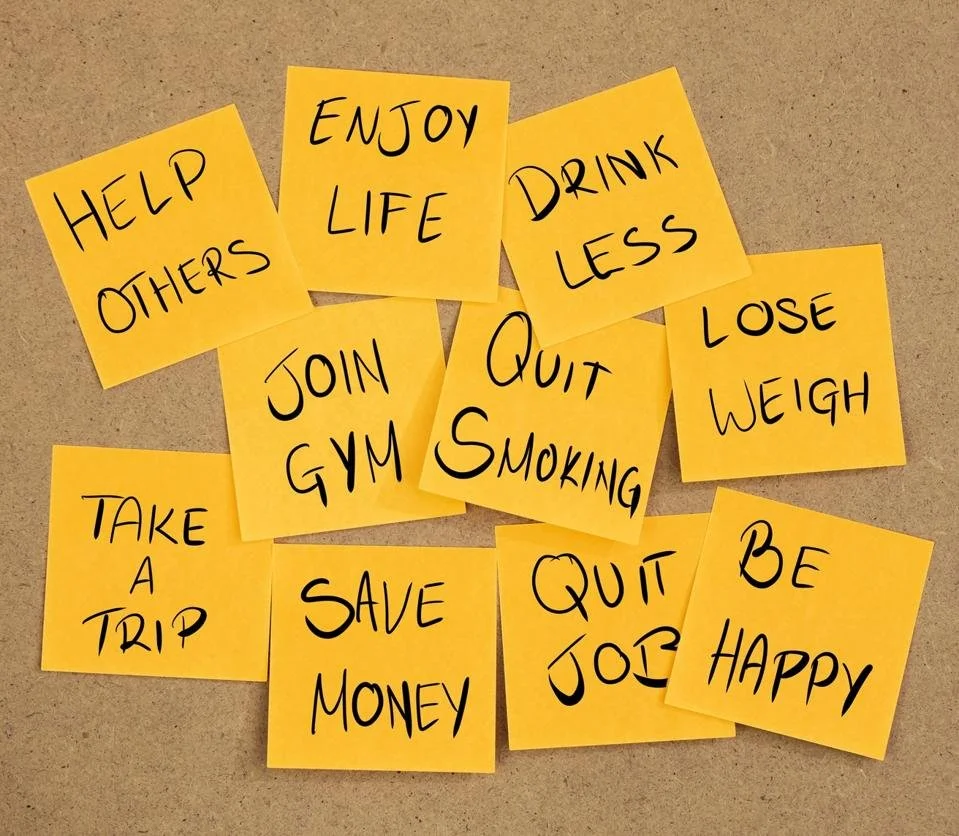 HELP
OTHERS
ENJOY
LIFE
DRINK
LESS
JOIN
GYM
QUIT
SMOKING
LOSE
WEIGH
TAKE
A
TRIP
SAVE
MONEY
QUIT
JOB
BE
HAPPY